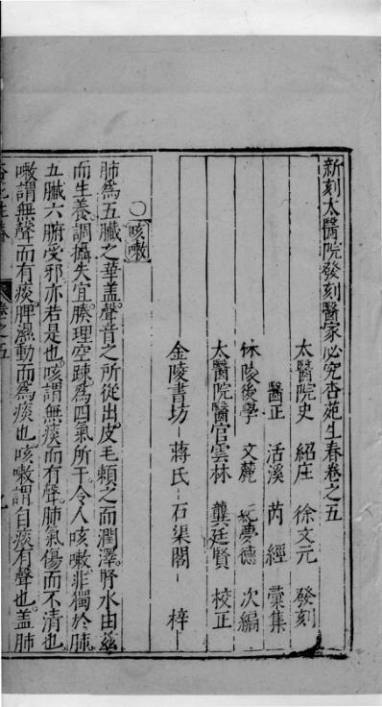 新刻太醫院發刻醫家必究杏苑生春卷之五
太醫院史 紹庄 徐文元 發刻
醫正 活溪 芮經 彙集
休陵後學 文麓 夢德 次編
太醫院醫官雲林 龔廷賢 校正
金陵書坊 蔣氏 石渠閣 梓
〇咳嗽
肺爲五臟之華盖聲音之所從出皮毛頼之而潤澤腎水由兹
而生養調攝失宜腠理空疎爲四氣所干令人咳嗽非獨於肺
五臟六腑受邪亦若是也咳謂無痰而有聲肺氣傷而不清也
嗽謂無聲而有痰脾濕動而爲痰也咳嗽謂自痰有聲也盖肺